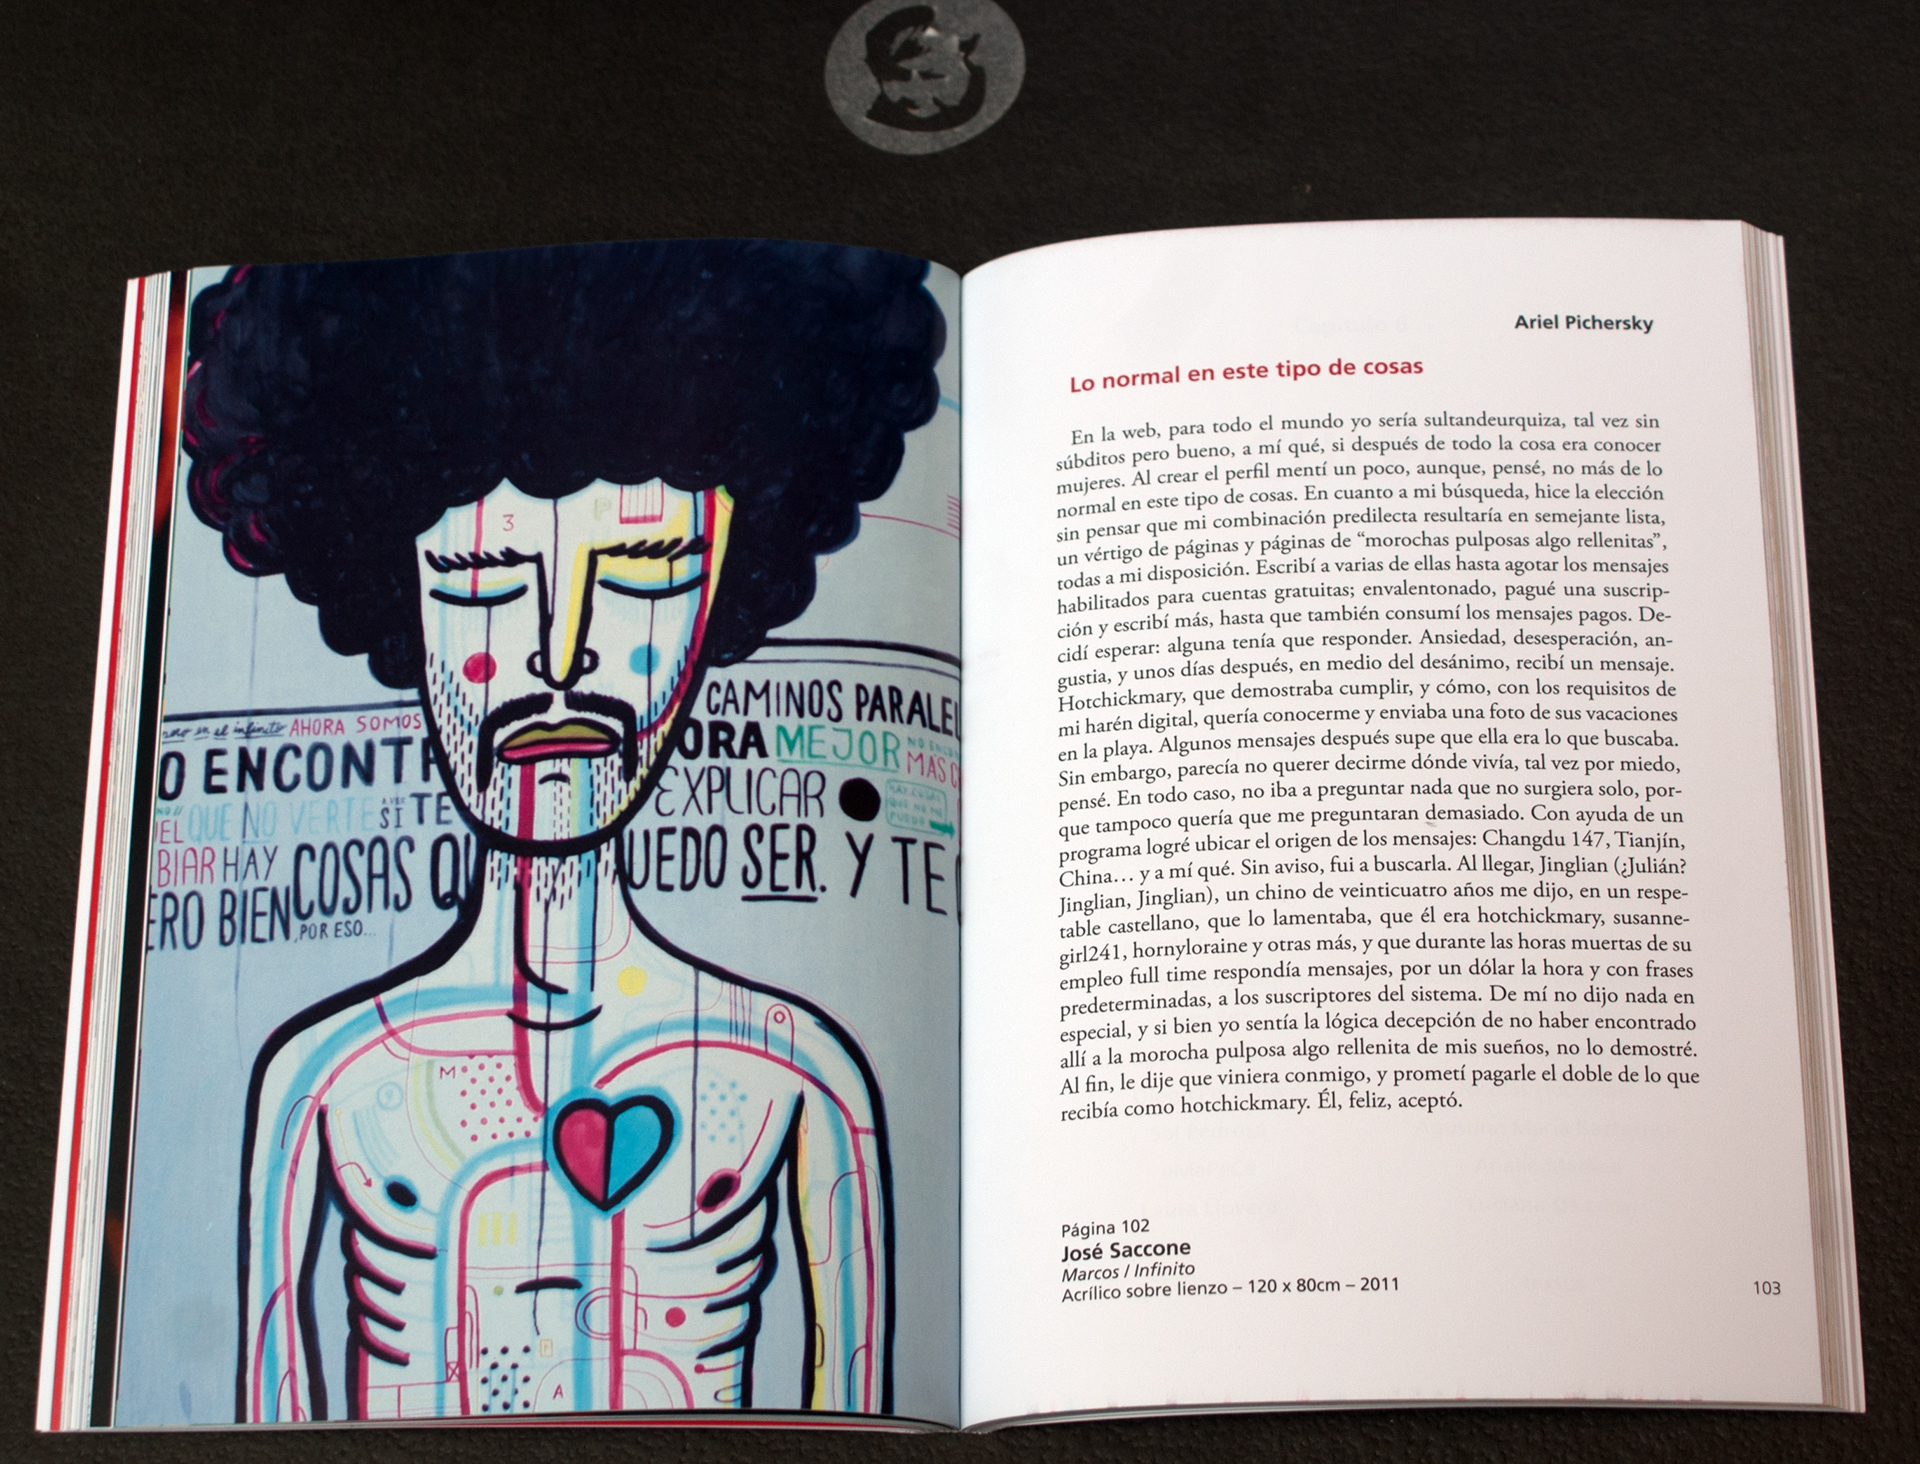 3
P
CAMINOS PARALEL
ero en el infinito AHORA SOMOS
ORA MEJOR NO ENCON
MÁS C
O ENCONTR
EXPLICAR
HAY COSAS
QUE NO ME
PUEDO
QUE NO VERTE
SI TE
IEL
BIAR HAY COSAS QU
UEDO SER. Y TE
ERO BIEN, POR ESO...
M
P
A
Ariel Pichersky
Lo normal en este tipo de cosas
En la web, para todo el mundo yo sería sultandeurquiza, tal vez sin
súbditos pero bueno, a mí qué, si después de todo la cosa era conocer
mujeres. Al crear el perfil mentí un poco, aunque, pensé, no más de lo
normal en este tipo de cosas. En cuanto a mi búsqueda, hice la elección
sin pensar que mi combinación predilecta resultaría en semejante lista,
un vértigo de páginas y páginas de “morochas pulposas algo rellenitas”,
todas a mi disposición. Escribí a varias de ellas hasta agotar los mensajes
habilitados para cuentas gratuitas; envalentonado, pagué una suscrip-
ción y escribí más, hasta que también consumí los mensajes pagos. De-
cidí esperar: alguna tenía que responder. Ansiedad, desesperación, an-
gustia, y unos días después, en medio del desánimo, recibí un mensaje.
Hotchickmary, que demostraba cumplir, y cómo, con los requisitos de
mi harén digital, quería conocerme y enviaba una foto de sus vacaciones
en la playa. Algunos mensajes después supe que ella era lo que buscaba.
Sin embargo, parecía no querer decirme dónde vivía, tal vez por miedo,
pensé. En todo caso, no iba a preguntar nada que no surgiera solo, por-
que tampoco quería que me preguntaran demasiado. Con ayuda de un
programa logré ubicar el origen de los mensajes: Changdu 147, Tianjín,
China… y a mí qué. Sin aviso, fui a buscarla. Al llegar, Jinglian (¿Julián?
Jinglian, Jinglian), un chino de veinticuatro años me dijo, en un respe-
table castellano, que lo lamentaba, que él era hotchickmary, susanne-
girl241, hornyloraine y otras más, y que durante las horas muertas de su
empleo full time respondía mensajes, por un dólar la hora y con frases
predeterminadas, a los suscriptores del sistema. De mí no dijo nada en
especial, y si bien yo sentía la lógica decepción de no haber encontrado
allí a la morocha pulposa algo rellenita de mis sueños, no lo demostré.
Al fin, le dije que viniera conmigo, y prometí pagarle el doble de lo que
recibía como hotchickmary. Él, feliz, aceptó.
Página 102
José Saccone
Marcos / Infinito
Acrílico sobre lienzo – 120 x 80cm – 2011
103